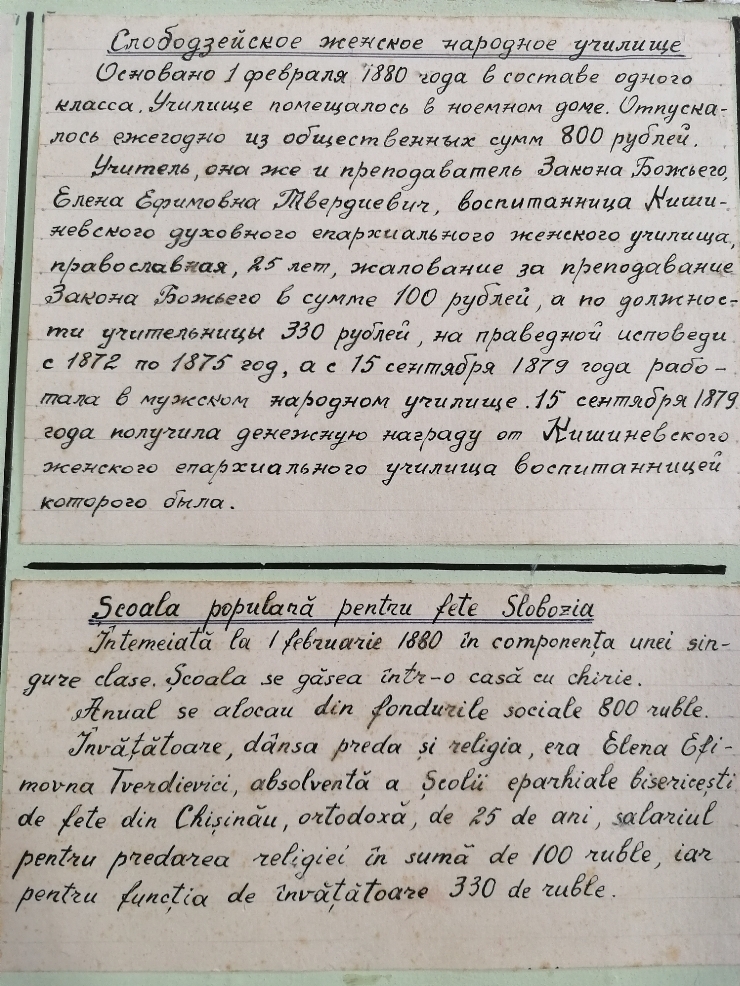 Слободзейское женское народное училище
Основано 1 февраля 1880 года в составе одного
класса. Училище помещалось в ноемном доме. Отпуска-
лось ежегодно из общественных сумм 800 рублей.
Учитель, она же и преподаватель Закона Божьего,
Елена Ефимовна Твердиевич, воспитанница Киши-
невского духовного епархиального женского училища,
православная, 25 лет, жалование за преподавание
Закона Божьего в сумме 100 рублей, а по должнос-
ти учительницы 330 рублей, на праведной исповеди
с 1872 по 1875 год, а с 15 сентября 1879 года рабо-
тала в мужском народном училище. 15 сентября 1879
года получила денежную награду от Кишиневского
женского епархиального училища воспитанницей
которого была.
Școala populară pentru fete Slobozia
Întemeiată la 1 februarie 1880 în componența unei sin-
gure clase. Școala se găsea într-o casă cu chirie.
Anual se alocau din fondurile sociale 800 ruble.
Învățătoare, dânsa preda și religia, era Elena Efi-
movna Tverdievici, absolventă a Școlii eparhiale bisericești
de fete din Chișinău, ortodoxă, de 25 de ani, salariul
pentru predarea religiei în sumă de 100 ruble, iar
pentru funcția de învățătoare 330 de ruble.